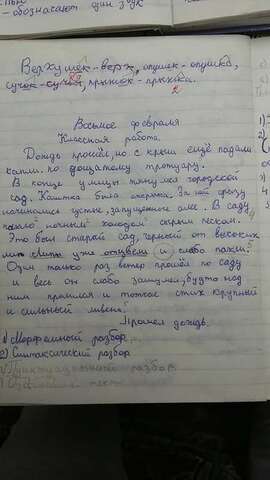 — обозначают один звук
Верхушек - верх, опушек - опушка,
сучок - сучья, прыжок - прыжка.
Восьмое февраля
Классная работа.
Дождь прошёл, но с крыш ещё падали
капли по дощатому тротуару.
В конце улицы тянулся городской
сад. Калитка была открыта. За ней сразу
начинались густые, запущенные аллеи. В саду
пахло ночным холодом сырым песком.
Это был старый сад, чёрный от высоких
лип. Липы уже отцвели и слабо пахли.
Один только раз ветер прошёл по саду
и весь он слабо зашумел, будто над
ним пролился и тотчас стих крупный
и сильный ливень.
Прошёл дождь.
1) Морфемный разбор
2) Синтаксический разбор
Пунктуационный разбор